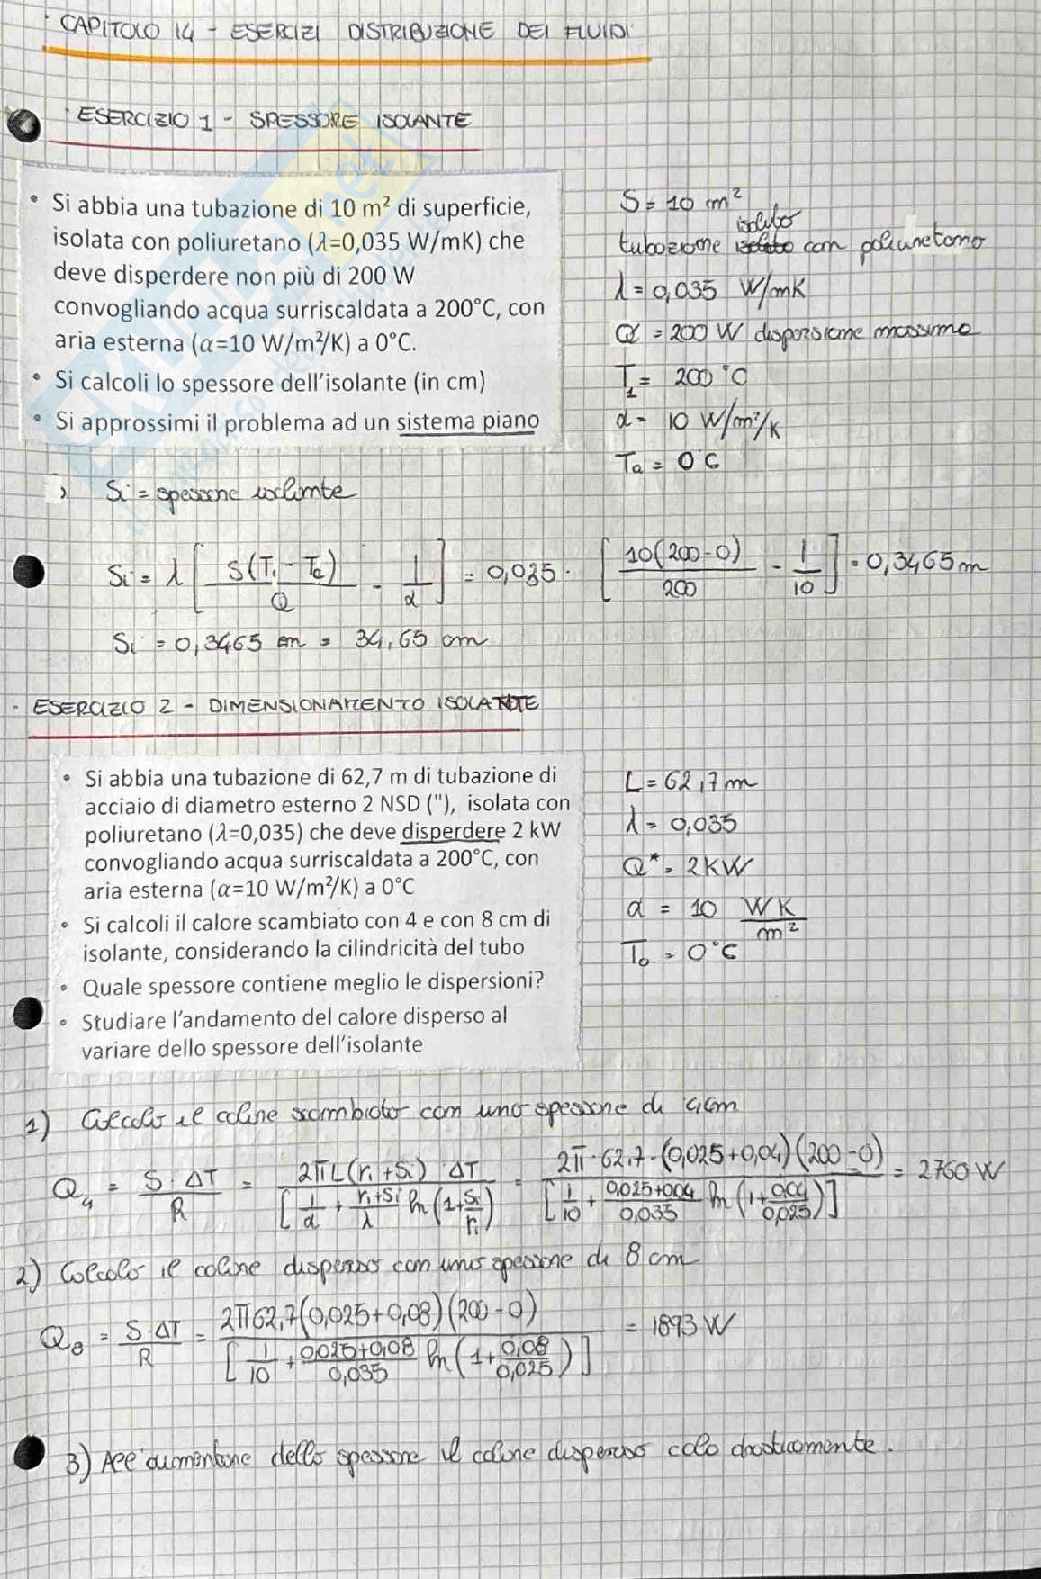 CAPITOLO 14 - ESERCIZI DISTRIBUZIONE DEI FLUIDI
ESERCIZIO 1 - SPESSORE ISOLANTE
• Si abbia una tubazione di 10 m² di superficie,
isolata con poliuretano (λ=0,035 W/mK) che
deve disperdere non più di 200 W
convogliando acqua surriscaldata a 200°C, con
aria esterna (α=10 W/m²/K) a 0°C.
• Si calcoli lo spessore dell'isolante (in cm)
• Si approssimi il problema ad un sistema piano
S = 10 m²
isolata
tubazione con poliuretano
λ = 0,035 W/mK
Q = 200 W dispersione massima
T₁ = 200 °C
α = 10 W/m²/K
Ta = 0°C
Si = spessore isolante
Si = λ [ S(T₁ - Ta) / Q - 1/α ] = 0,035 · [ 10(200-0) / 200 - 1/10 ] = 0,3465 m
Si = 0,3465 m = 34,65 cm
ESERCIZIO 2 - DIMENSIONAMENTO ISOLANTE
• Si abbia una tubazione di 62,7 m di tubazione di
acciaio di diametro esterno 2 NSD ("), isolata con
poliuretano (λ=0,035) che deve disperdere 2 kW
convogliando acqua surriscaldata a 200°C, con
aria esterna (α=10 W/m²/K) a 0°C
• Si calcoli il calore scambiato con 4 e con 8 cm di
isolante, considerando la cilindricità del tubo
• Quale spessore contiene meglio le dispersioni?
• Studiare l'andamento del calore disperso al
variare dello spessore dell'isolante
L = 62,7 m
λ = 0,035
Q* = 2 kW
α = 10 WK/m²
T₀ = 0°C
1) Calcolo il calore scambiato con uno spessore di 4cm
Q₄ = S · ΔT / R = 2πL(r₁+Si) · ΔT / [ 1/α + r₁+Si/λ ln(1+Si/r₁) ] = 2π · 62,7 · (0,025+0,04)(200-0) / [ 1/10 + 0,025+0,04/0,035 ln(1+0,04/0,025) ] = 2760 W
2) Calcolo il calore disperso con uno spessore di 8 cm
Q₈ = S · ΔT / R = 2π62,7(0,025+0,08)(200-0) / [ 1/10 + 0,025+0,08/0,035 ln(1+0,08/0,025) ] = 1893 W
3) All'aumentare dello spessore il calore disperso cala drasticamente.